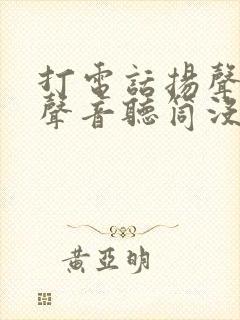 打電話揚聲
聲音聽筒沒
黃亞明